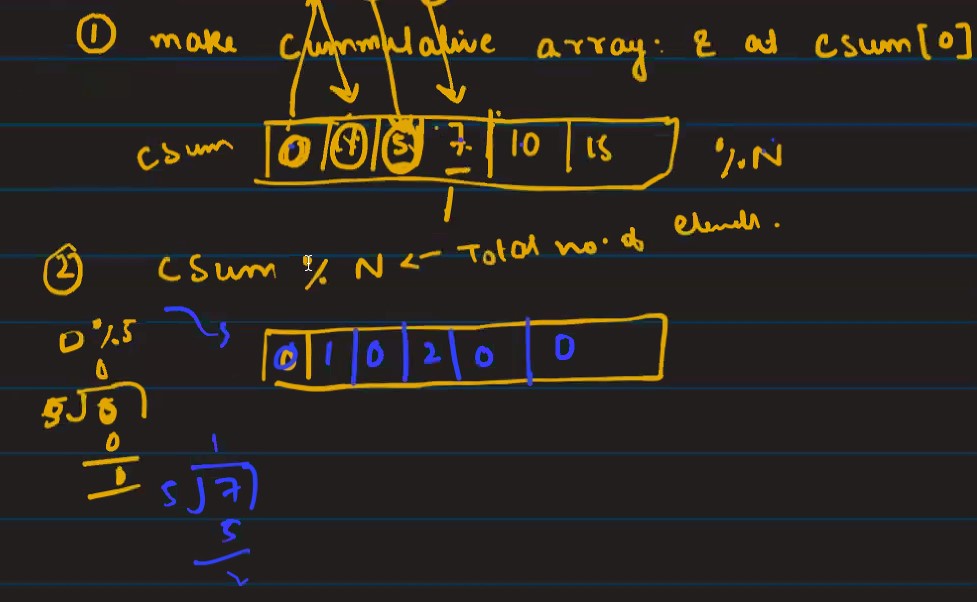 ① make Cummulative array: & at csum[0]
csum 0 5 7 10 15 %N
② CSum % N ← Total no. of elements.
0%5
0 1 0 2 0 0
0
5 0
0
0
1
5 7
5
2